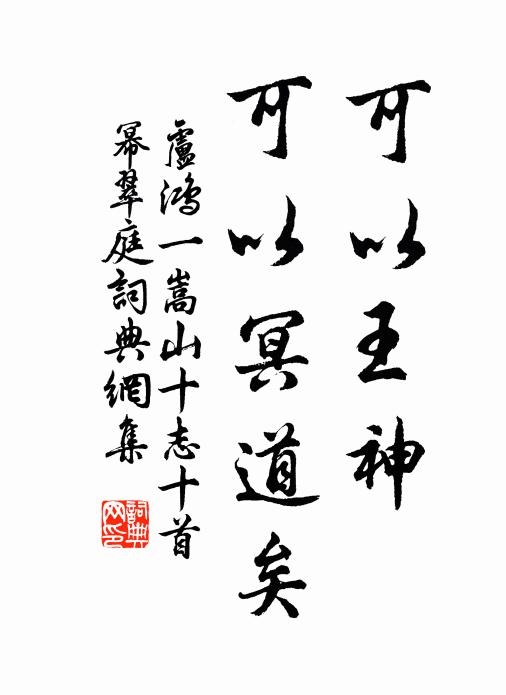 可以王神
可以冥道矣
盧鴻一嵩山十志十首
冪翠庭詞典網集
詞典網印